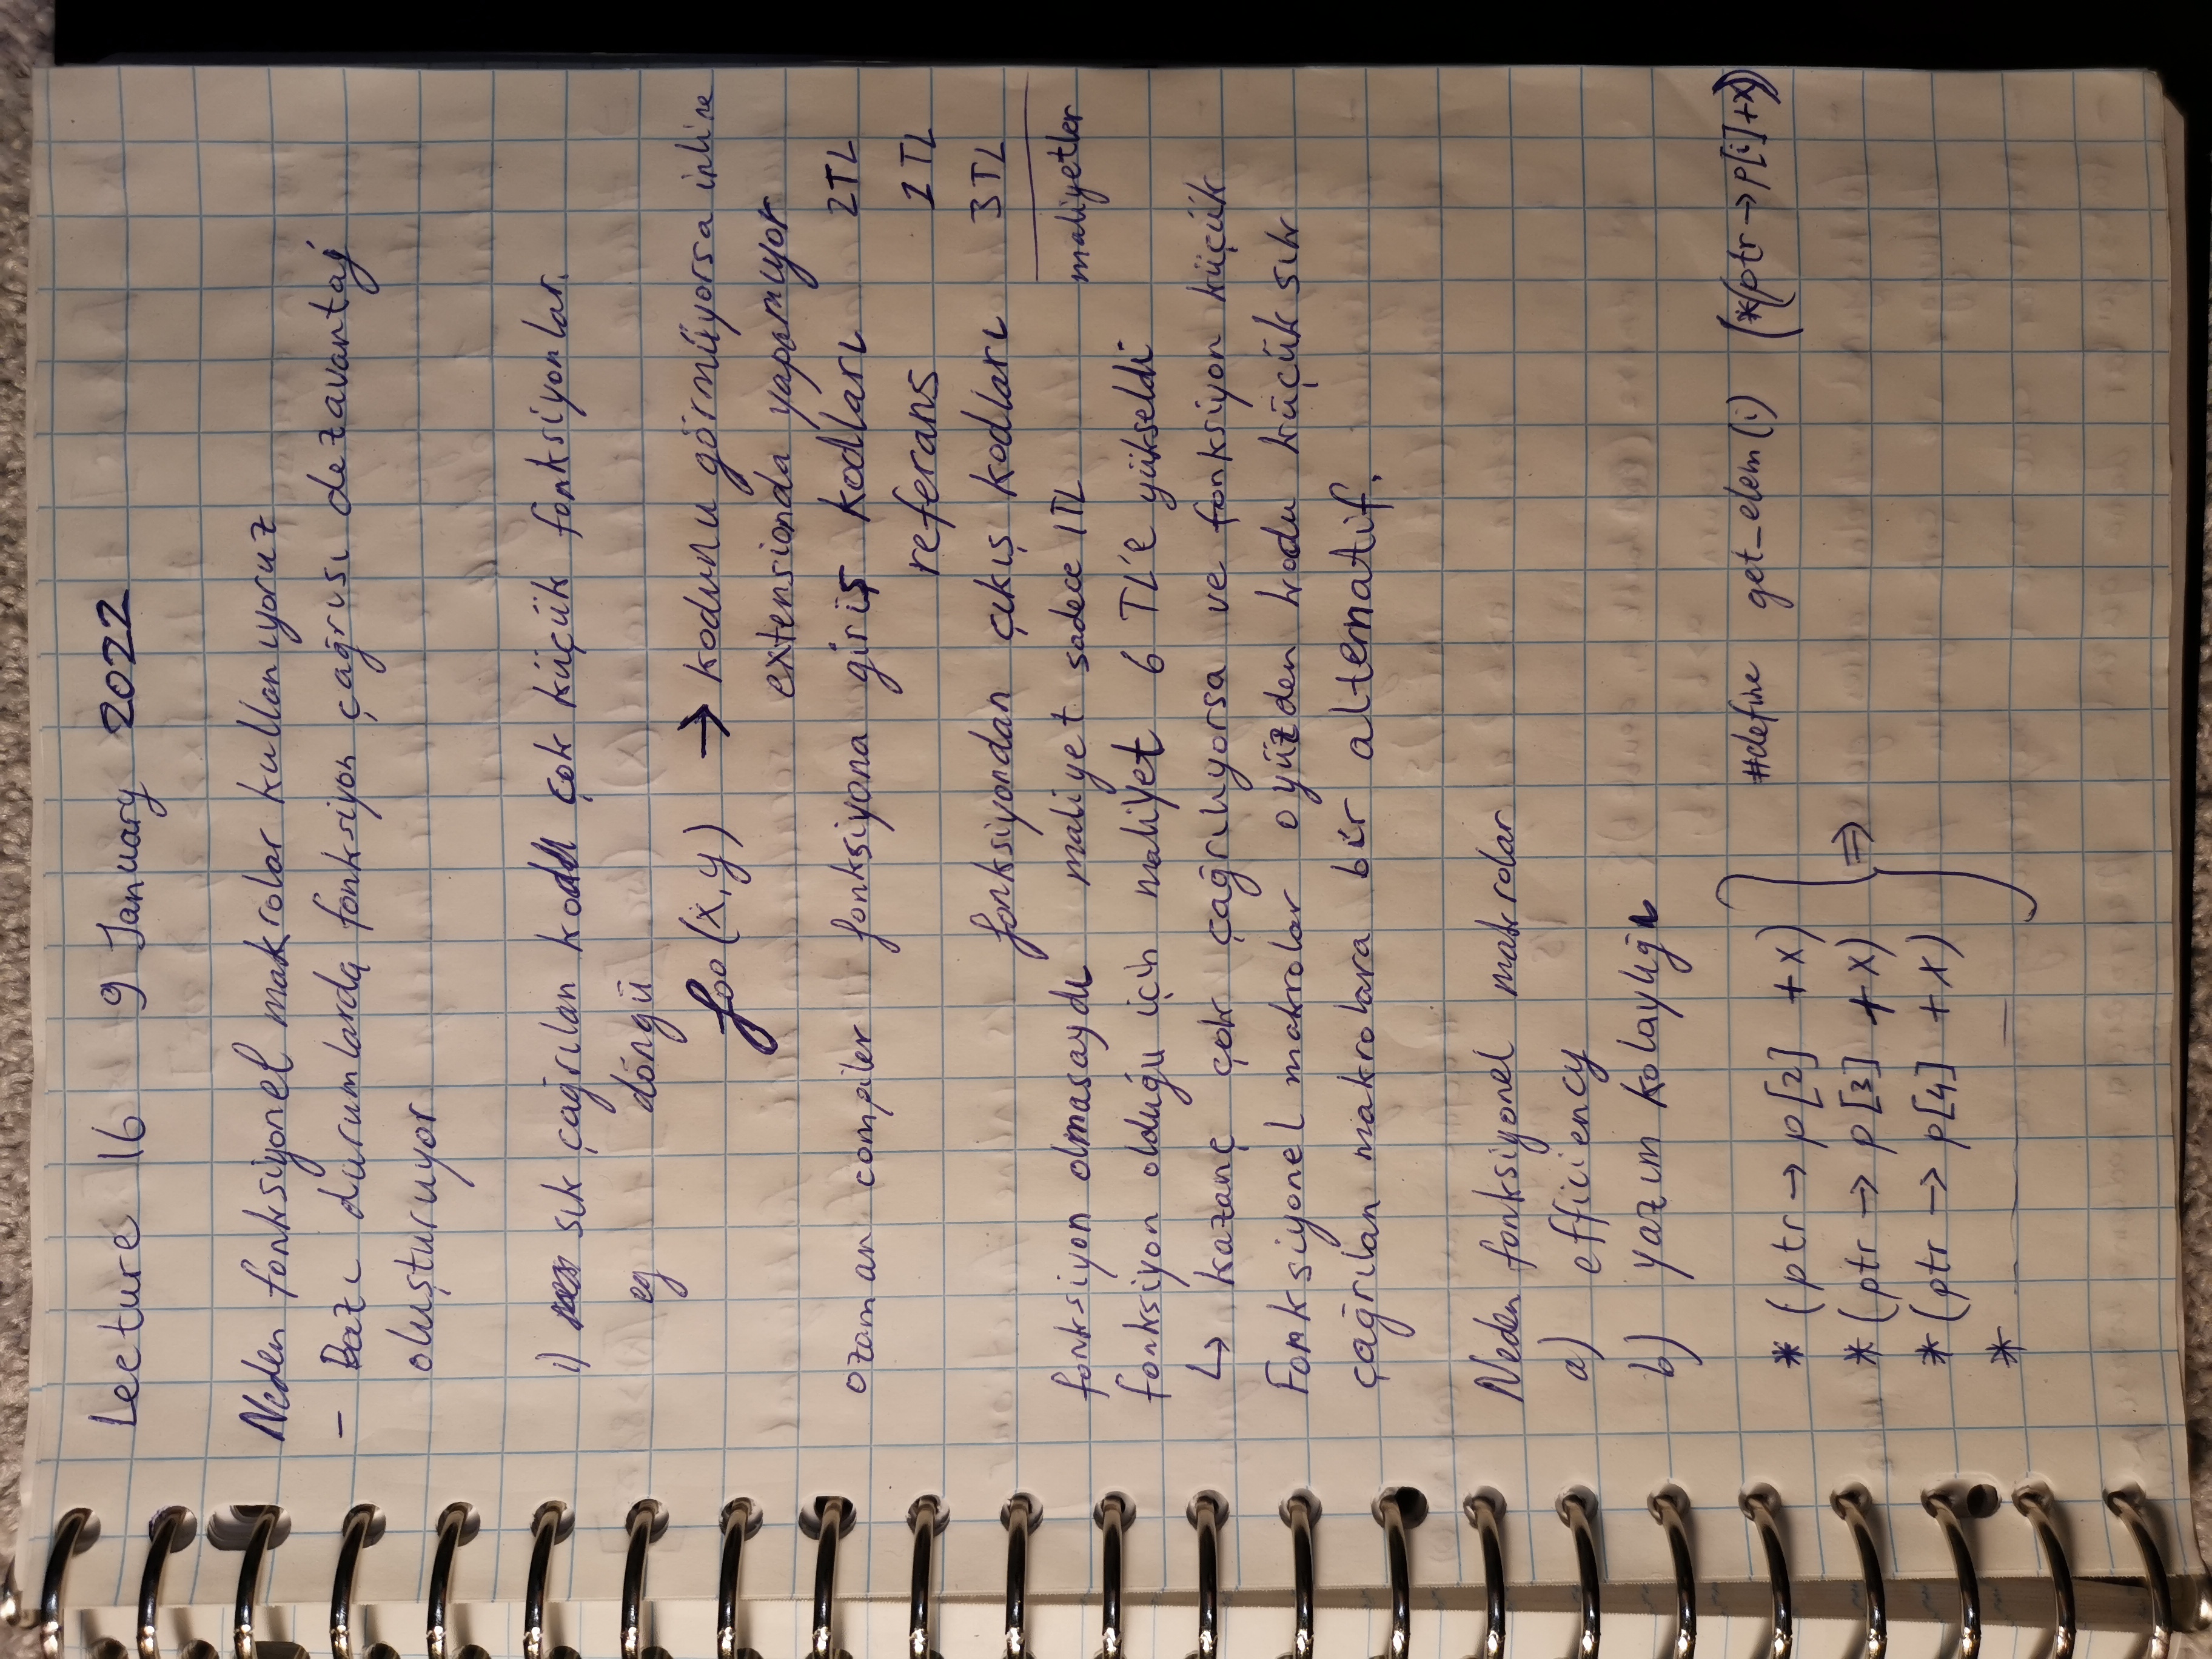 Lecture 16 9 January 2022
Neden fonksiyonel makrolar kullanıyoruz
- Bazı durumlarda fonksiyon çağrısı dezavantaj
oluşturuyor
i) sık çağrılan kodu çok küçük fonksiyonlar.
eg döngü
foo(x,y) → kodunu görmüyorsa inline
extensionda yapamıyor
ozaman compiler fonksiyona giriş kodları 2TL
referans 1TL
fonksiyondan çıkış kodları 3TL
fonksiyon olmasaydı maliyet sadece 1TL maliyetler
fonksiyon olduğu için maliyet 6 TL'e yükseldi
↳ kazanç çok çağrılıyorsa ve fonksiyon küçük
Fonksiyonel makrolar oyüzden kodu küçük sık
çağrılan makrolara bir alternatif.
Neden fonksiyonel makrolar
a) efficiency
b) yazım kolaylığı
#define get_elem(i) (*(ptr→p[i]+x))
*(ptr → p[2] +x)
*(ptr → p[3] +x) ⇒
*(ptr → p[4] +x)
* ___ _